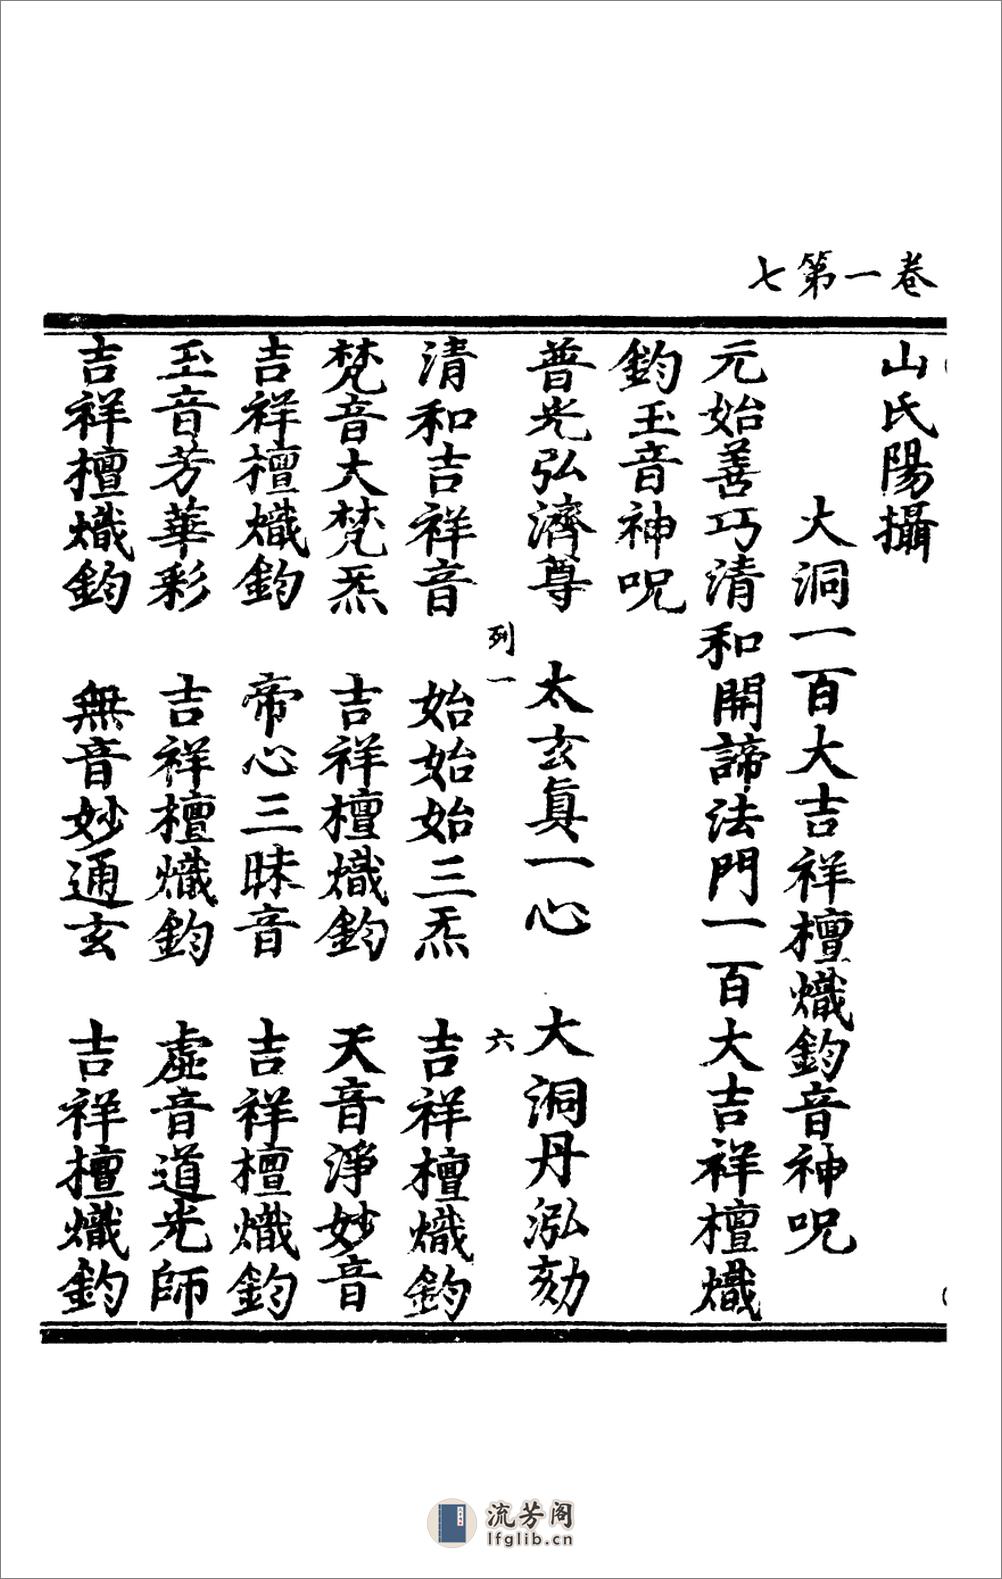 卷一第七
山氏陽攝
大洞一百大吉祥檀熾鈞音神呪
元始善巧清和開諦法門一百大吉祥檀熾
鈞玉音神呪
普光弘濟尊 太玄眞一心 大洞丹泓劾
列一 六
清和吉祥音 始始始三炁 吉祥檀熾鈞
梵音大梵炁 吉祥檀熾鈞 天音淨妙音
吉祥檀熾鈞 帝心三昧音 吉祥檀熾鈞
玉音芳華彩 吉祥檀熾鈞 虛音道光師
吉祥檀熾鈞 無音妙通玄 吉祥檀熾鈞
流芳阁
lfglib.cn